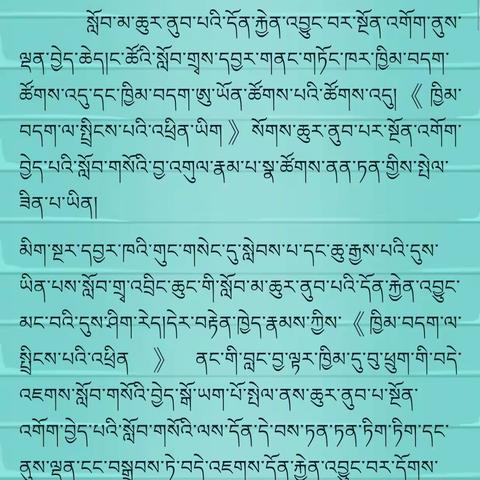 སློབ་མ་ཆུར་ནུབ་པའི་དོན་རྐྱེན་འབྱུང་བར་སྔོན་འགོག་ནུས་
ལྡན་བྱེད་ཆེད།ང་ཚོའི་སློབ་གྲྭས་དབྱར་གནང་གཏོང་ཁར་ཁྱིམ་བདག་
ཚོགས་འདུ་དང་ཁྱིམ་བདག་ཨུ་ཡོན་ཚོགས་པའི་ཚོགས་འདུ། 《 ཁྱིམ་
བདག་ལ་སྤྲིངས་པའི་འཕྲིན་ཡིག 》 སོགས་ཆུར་ནུབ་པར་སྔོན་འགོག་
བྱེད་པའི་སློབ་གསོའི་བྱ་འགུལ་རྣམ་པ་སྣ་ཚོགས་ནན་ཏན་གྱིས་སྤེལ་
ཟིན་པ་ཡིན།
མིག་སྔར་དབྱར་ཁའི་གུང་གསེང་དུ་སླེབས་པ་དང་ཆུ་རྒྱས་པའི་དུས་
ཡིན་པས་སློབ་གྲྭ་འབྲིང་ཆུང་གི་སློབ་མ་ཆུར་ནུབ་པའི་དོན་རྐྱེན་འབྱུང་
མང་བའི་དུས་ཤིག་རེད།དེར་བརྟེན་ཁྱེད་རྣམས་ཀྱིས་ 《 ཁྱིམ་བདག་ལ་
སྤྲིངས་པའི་འཕྲིན 》 ནང་གི་བླང་བྱ་ལྟར་ཁྱིམ་དུ་བུ་ཕྲུག་གི་བདེ་
འཇགས་སློབ་གསོའི་བྱེད་སྒོ་ཡག་པོ་སྤེལ་ནས་ཆུར་ནུབ་པ་སྔོན་
འགོག་བྱེད་པའི་སློབ་གསོའི་ལས་དོན་དེ་བས་ཏན་ཏན་ཏིག་ཏིག་དང་
ནུས་ལྡན་ངང་བསྒྲུབས་ཏེ་བདེ་འཇགས་དོན་རྐྱེན་འབྱུང་བར་དོགས་